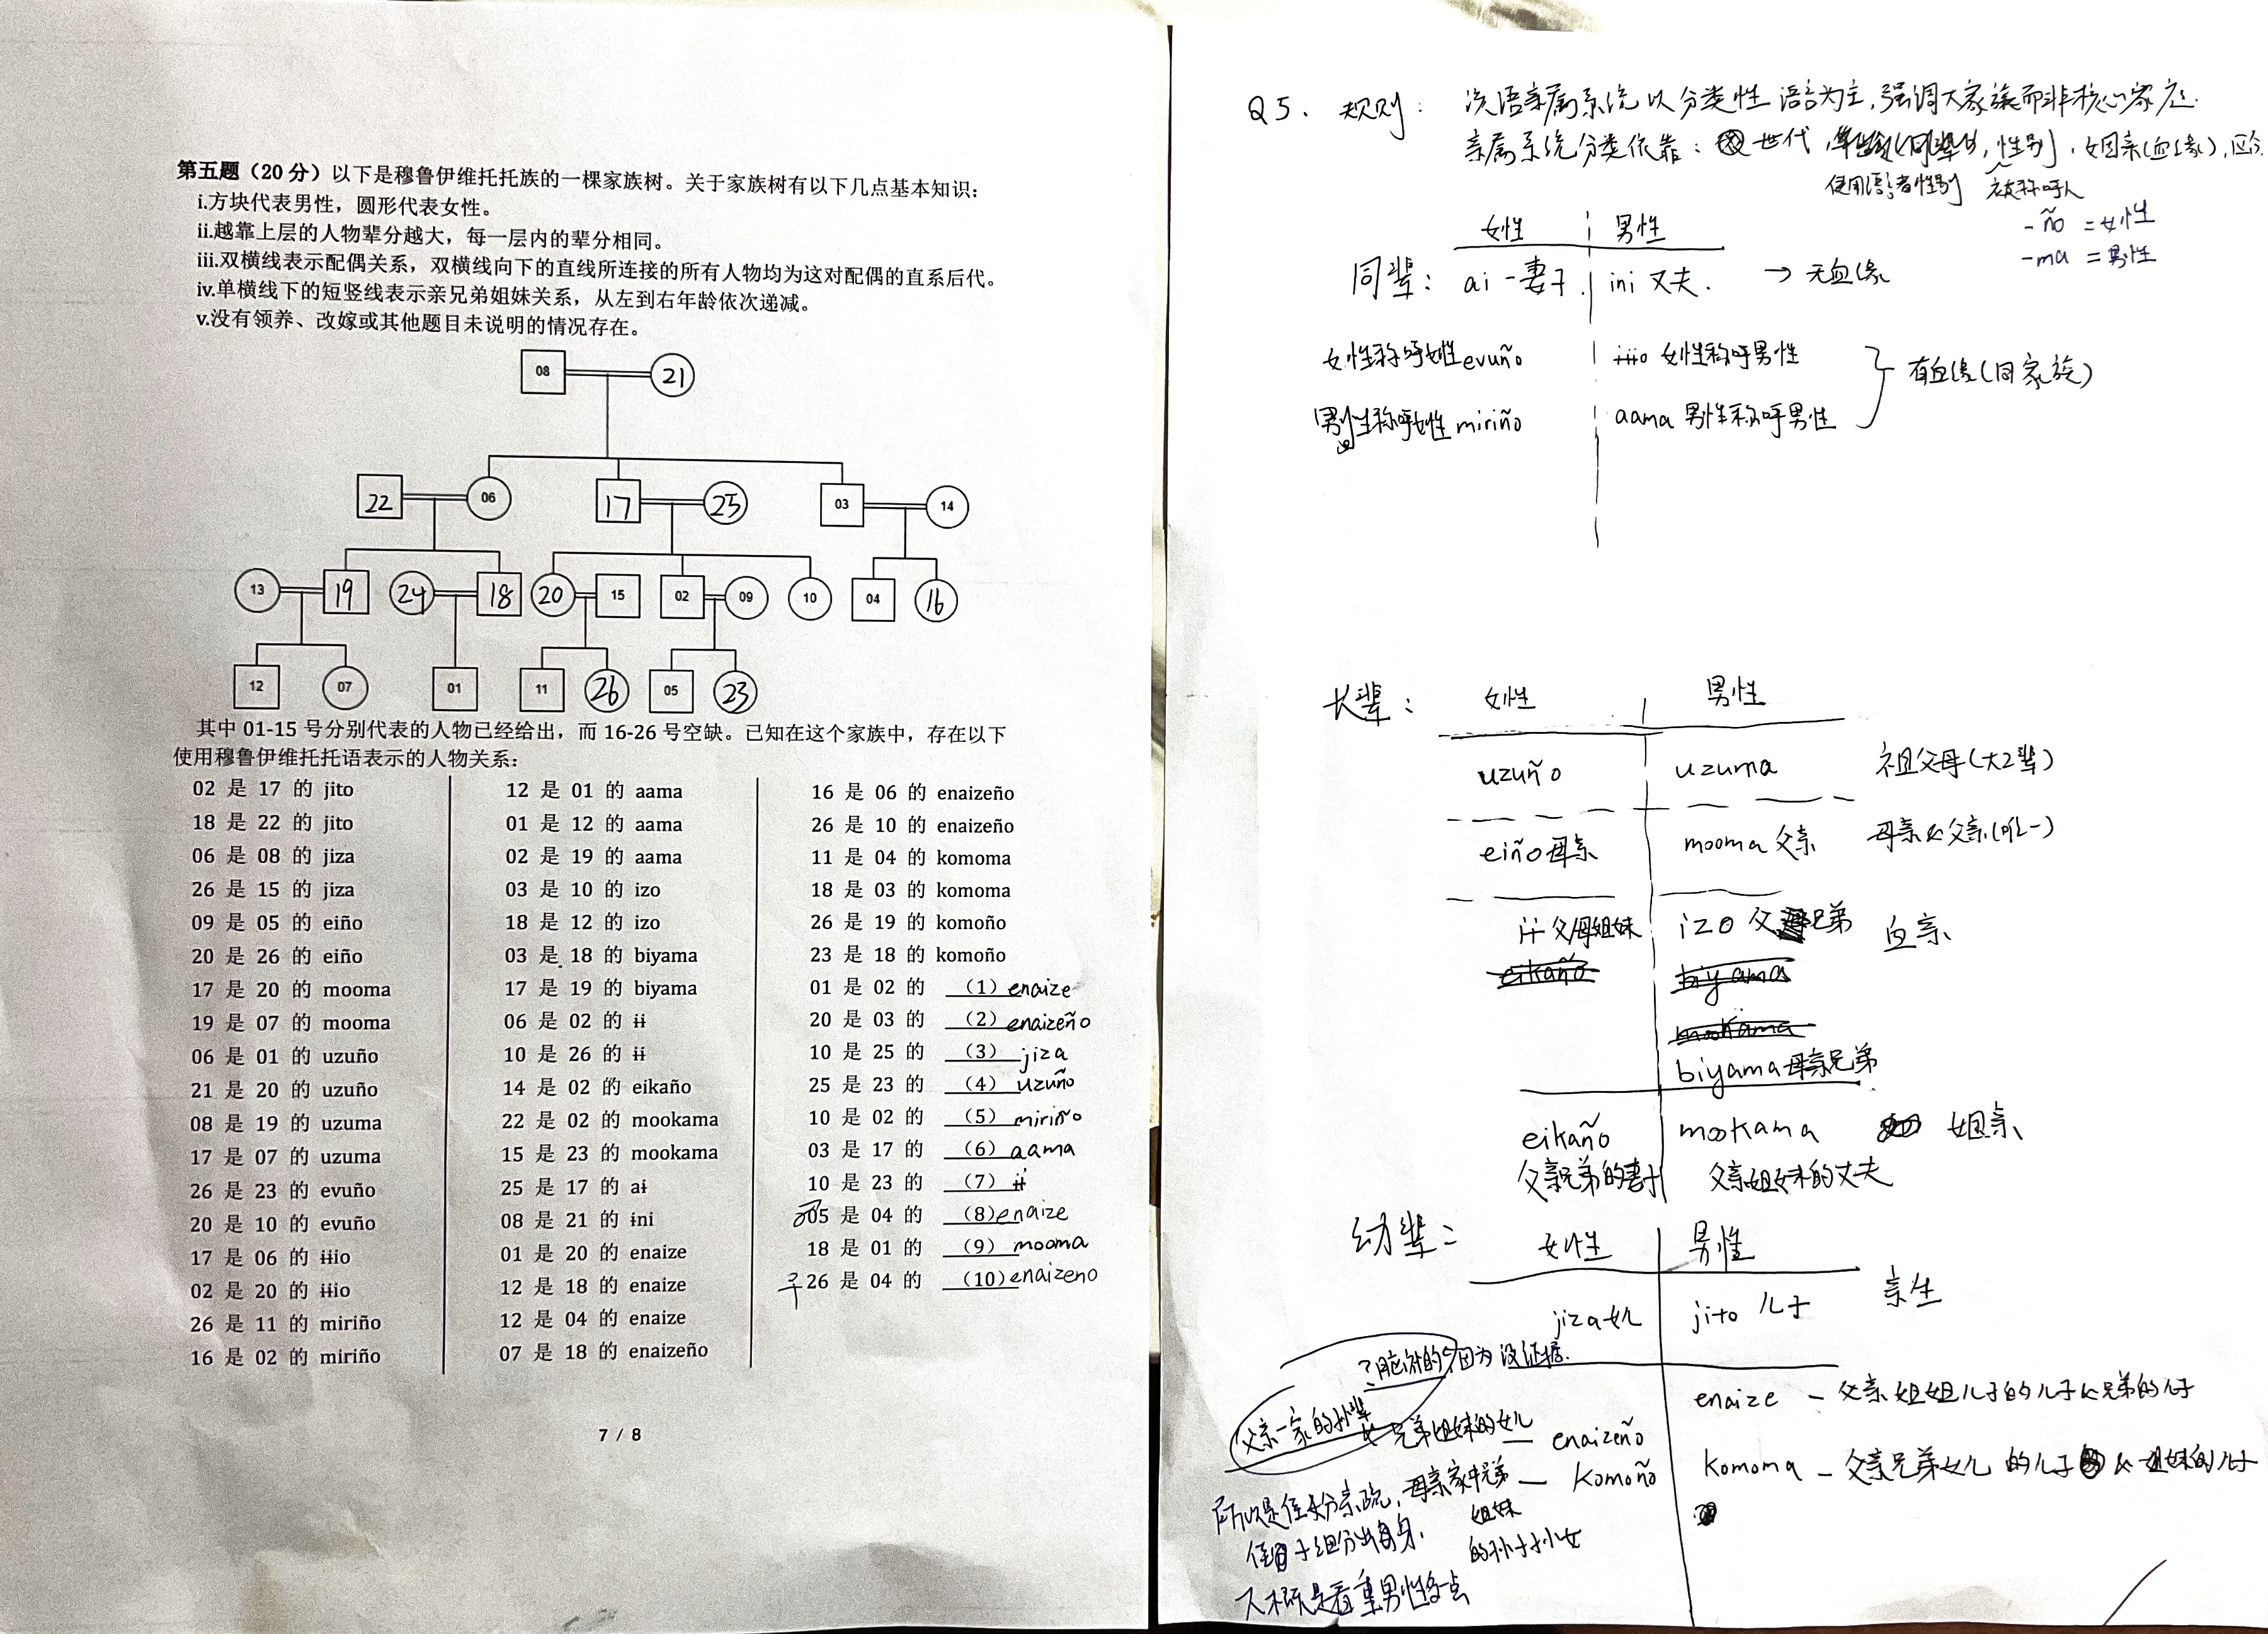 第五题（20 分）以下是穆鲁伊维托托族的一棵家族树。关于家族树有以下几点基本知识：
i.方块代表男性，圆形代表女性。
ii.越靠上层的人物辈分越大，每一层内的辈分相同。
iii.双横线表示配偶关系，双横线向下的直线所连接的所有人物均为这对配偶的直系后代。
iv.单横线下的短竖线表示亲兄弟姐妹关系，从左到右年龄依次递减。
v.没有领养、改嫁或其他题目未说明的情况存在。
08 21
22 06 17 25 03 14
13 19 24 18 20 15 02 09 10 04 16
12 07 01 11 26 05 23
其中 01-15 号分别代表的人物已经给出，而 16-26 号空缺。已知在这个家族中，存在以下
使用穆鲁伊维托托语表示的人物关系：
02 是 17 的 jito
18 是 22 的 jito
06 是 08 的 jiza
26 是 15 的 jiza
09 是 05 的 eiño
20 是 26 的 eiño
17 是 20 的 mooma
19 是 07 的 mooma
06 是 01 的 uzuño
21 是 20 的 uzuño
08 是 19 的 uzuma
17 是 07 的 uzuma
26 是 23 的 evuño
20 是 10 的 evuño
17 是 06 的 ɨɨio
02 是 20 的 ɨɨio
26 是 11 的 miriño
16 是 02 的 miriño
12 是 01 的 aama
01 是 12 的 aama
02 是 19 的 aama
03 是 10 的 izo
18 是 12 的 izo
03 是 18 的 biyama
17 是 19 的 biyama
06 是 02 的 ɨɨ
10 是 26 的 ɨɨ
14 是 02 的 eikaño
22 是 02 的 mookama
15 是 23 的 mookama
25 是 17 的 aɨ
08 是 21 的 ɨni
01 是 20 的 enaize
12 是 18 的 enaize
12 是 04 的 enaize
07 是 18 的 enaizeño
16 是 06 的 enaizeño
26 是 10 的 enaizeño
11 是 04 的 komoma
18 是 03 的 komoma
26 是 19 的 komoño
23 是 18 的 komoño
01 是 02 的 （1） enaize
20 是 03 的 （2） enaizeño
10 是 25 的 （3） jiza
25 是 23 的 （4） uzuño
10 是 02 的 （5） miriño
03 是 17 的 （6） aama
10 是 23 的 （7） ɨɨ
05 是 04 的 （8） enaize
18 是 01 的 （9） mooma
子 26 是 04 的 （10） enaizeno
7 / 8
Q5. 规则： 汉语亲属系统以分类性语言为主，强调大家族而非核心家庭.
亲属系统分类依靠： 世代， 性别， 姻亲(血缘)，区分
使用语言者性别 被称呼人
-ño = 女性
-ma = 男性
女性 男性
同辈： ai - 妻子. ini 丈夫. → 无血缘
女性称呼女性 evuño ɨɨio 女性称呼男性
有血缘(同家族)
男性称呼女性 miriño aama 男性称呼男性
长辈： 女性 男性
uzuño uzuma 祖父母(大2辈)
eiño 母亲 mooma 父亲 母亲 & 父亲(唯一)
ɨɨ 父/母姐妹 izo 父 兄弟 血亲
eikaño biyama
mookama
biyama 母亲兄弟
eikaño mookama 姻亲
父亲兄弟的妻子 父亲姐妹的丈夫
幼辈： 女性 男性
jiza 女儿 jito 儿子 亲生
因为没证据.
enaize - 父亲姐姐儿子的儿子 & 兄弟的儿子
父亲一家的孙辈 & 兄弟姐妹的女儿 — enaizeño
komoma - 父亲兄弟女儿的儿子 & 姐妹的儿子
母亲家中兄弟 — Komoño
姐妹
的孙子孙女